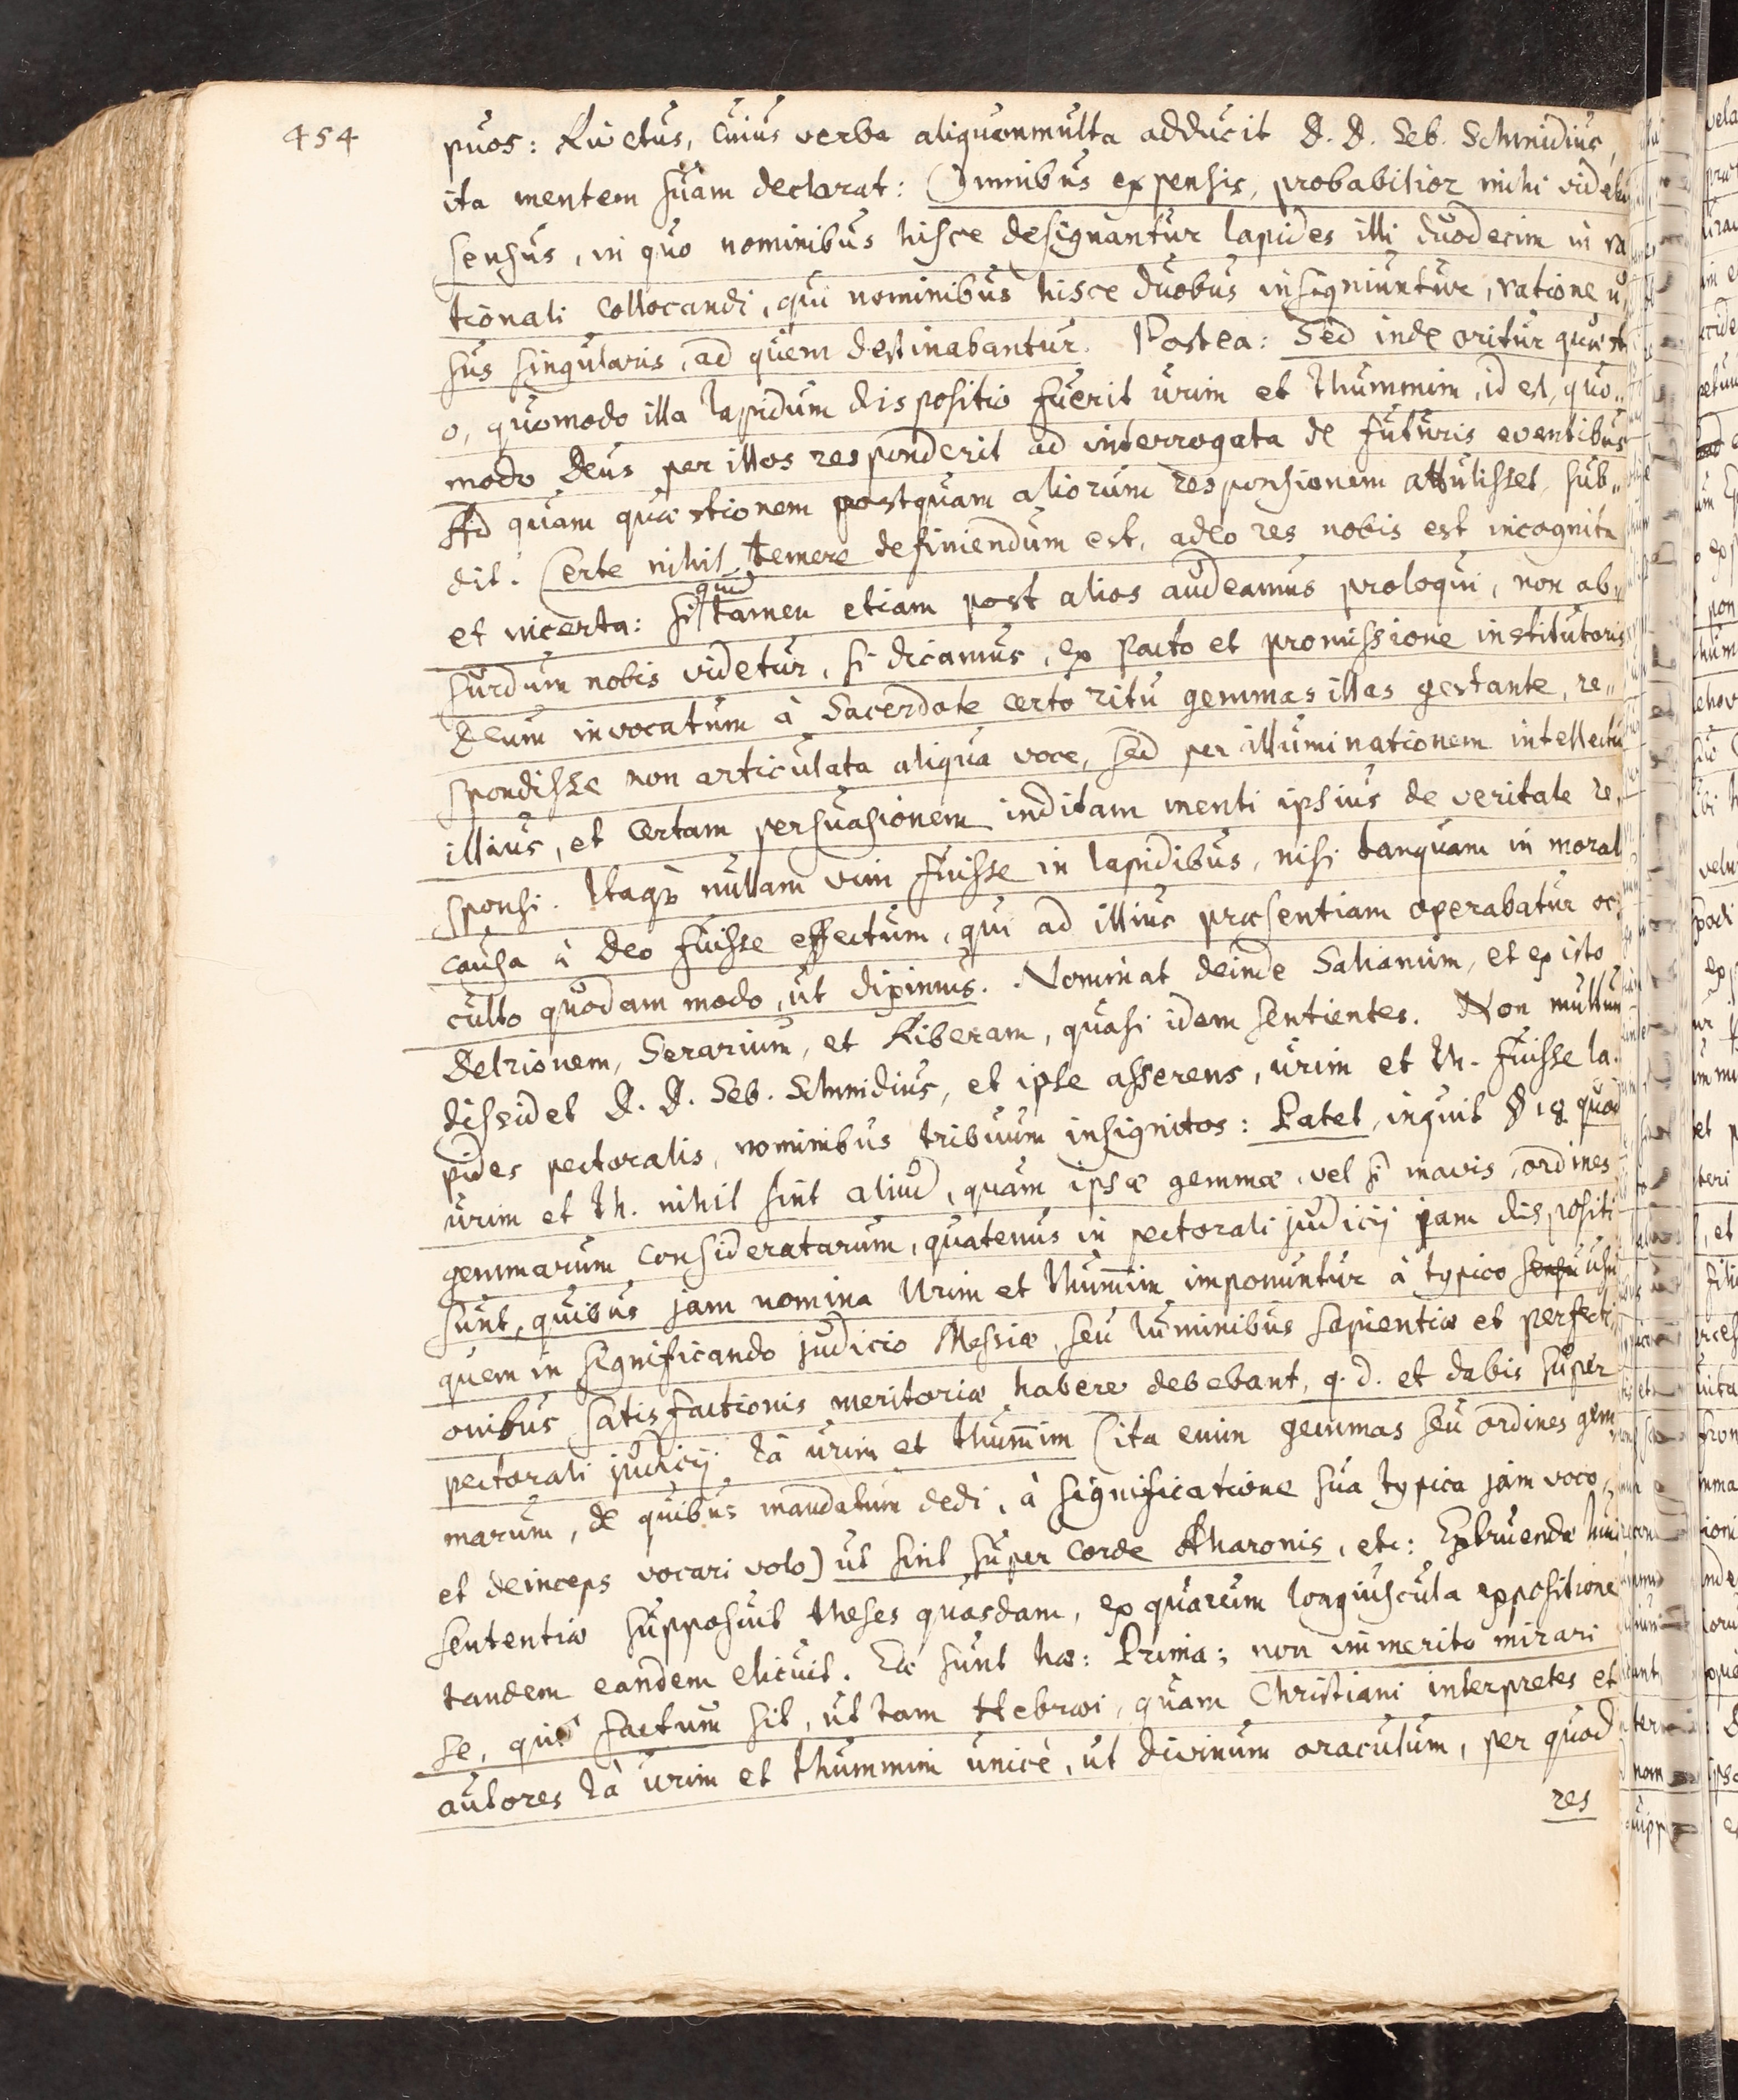 454
puos: Rivetus, cuius verba aliquammulta adducit D. D. Seb. Schmidius,
ita mentem suam declarat: Omnibus expensis, probabilior mihi videtur
sensus, in quo nominibus hisce designantur lapides illi duodecim in ra
tionali collocandi, qui nominibus hisce duobus insigniuntur, ratione u,,
sus singularis, ad quem destinabantur. Postea: Sed inde oritur quæsti
o, quomodo illa lapidum dispositio fuerit urim et thummim, id est, quo,,
modo Deus per illos responderit ad interrogata de futuris eventibus
Ad quam quæstionem postquam aliorum responsionem attulisset, sub,,
dit. Certe nihil temere definiendum est, adeo res nobis est incognita
et incerta: si quid tamen etiam post alios audeamus proloqui, non ab,,
surdum nobis videtur, si dicamus, ex pacto et promissione institutoris
Deum invocatum à Sacerdote certo ritu gemmas illas gestante, re,,
spondisse non articulata aliqua voce, sed per illuminationem intellectus
illius, et certam persuasionem inditam menti ipsius de veritate re,,
sponsi. Itaq3 nullam vim fuisse in lapidibus, nisi tanquam in morali
causa à Deo fuisse effectum, qui ad illius præsentiam operabatur oc,,
culto quodam modo, ut diximus. Nominat deinde Salianum, et ex isto
Delrionem, Serarium, et Riberam, quasi idem sentientes. Non multum
dissidet D. D. Seb. Schmidius, et ipse asserens, urim et th. fuisse la,,
pides pectoralis, nominibus tribuum insignitos: Patet, inquit § 18 quod
urim et th. nihil sint aliud, quam ipsæ gemmæ, vel si mavis, ordines
gemmarum consideratarum, quatenus in pectorali judicij jam dispositi
sunt, quibus jam nomina Urim et thum̄im imponuntur à typico sensu usu
quem in significando judicio Messiæ, seu luminibus sapientiæ et perfecti,,
onibus satisfactionis meritoriæ habere debebant, q. d. et dabis super
pectorali judicij τὰ urim et thum̄im (ita enim gemmas seu ordines gem
marum, de quibus mandatum dedi, à significatione sua typica jam voco,
et deinceps vocari volo) ut sint super corde Aharonis, etc: Exstruendæ huic
sententiæ supposuit theses quasdam, ex quarum longiuscula expositione
tandem eandem elicuit. Eæ sunt hæ: Prima; non immerito mirari
se, qui factum sit, ut tam Hebræi, quam Christiani interpretes et
autores τὰ urim et thummim unicè, ut divinum oraculum, per quod
res